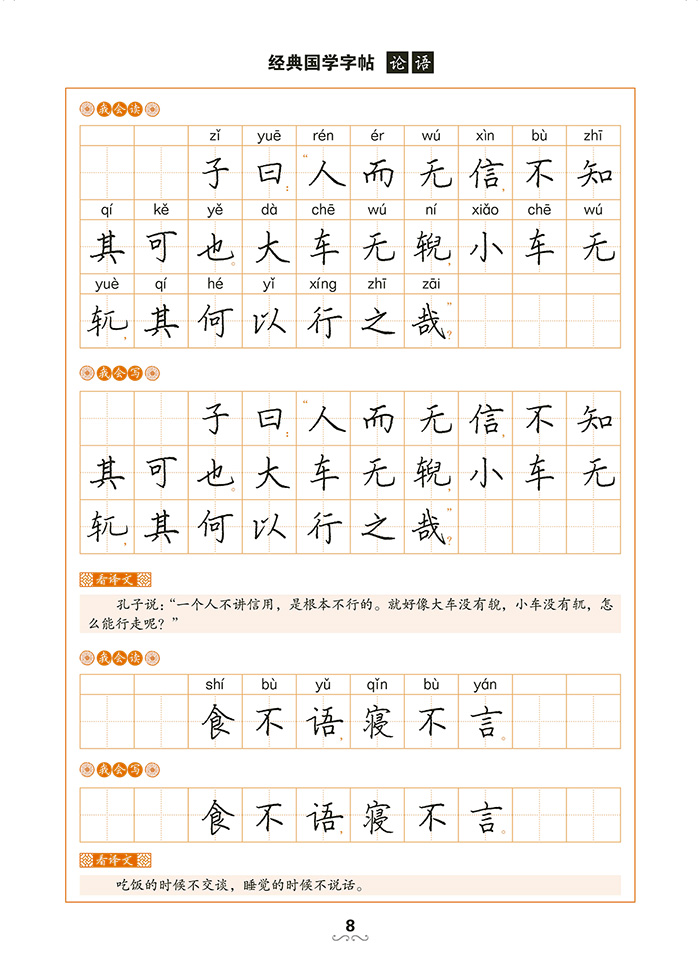 经典国学字帖 论语
我会读
zǐ yuē rén ér wú xìn bù zhī
子曰：“人而无信，不知
qí kě yě dà chē wú ní xiǎo chē wú
其可也。大车无輗，小车无
yuè qí hé yǐ xíng zhī zāi
软，其何以行之哉？”
我会写
子曰：“人而无信，不知
其可也。大车无輗，小车无
軏，其何以行之哉？”
看译文
孔子说：“一个人不讲信用，是根本不行的。就好像大车没有輗，小车没有軏，怎
么能行走呢？”
我会读
shí bù yǔ qǐn bù yán
食不语，寝不言。
我会写
食不语，寝不言。
看译文
吃饭的时候不交谈，睡觉的时候不说话。
8